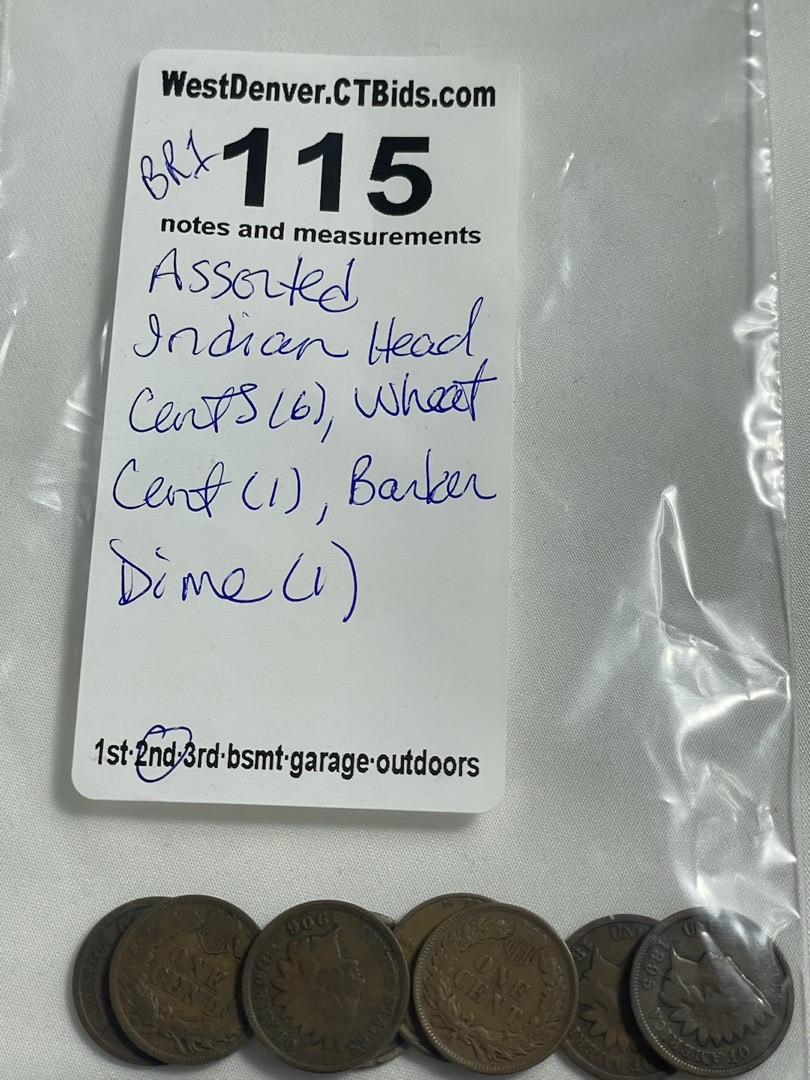 WestDenver.CTBids.com
BR1
115
notes and measurements
Assorted
Indian Head
Cents (6), Wheat
Cent (1), Barber
Dime (1)
1st·2nd·3rd·bsmt·garage·outdoors
ONE
CENT
1908
ONE
CENT
UN
UNI
1895
OF AMERICA